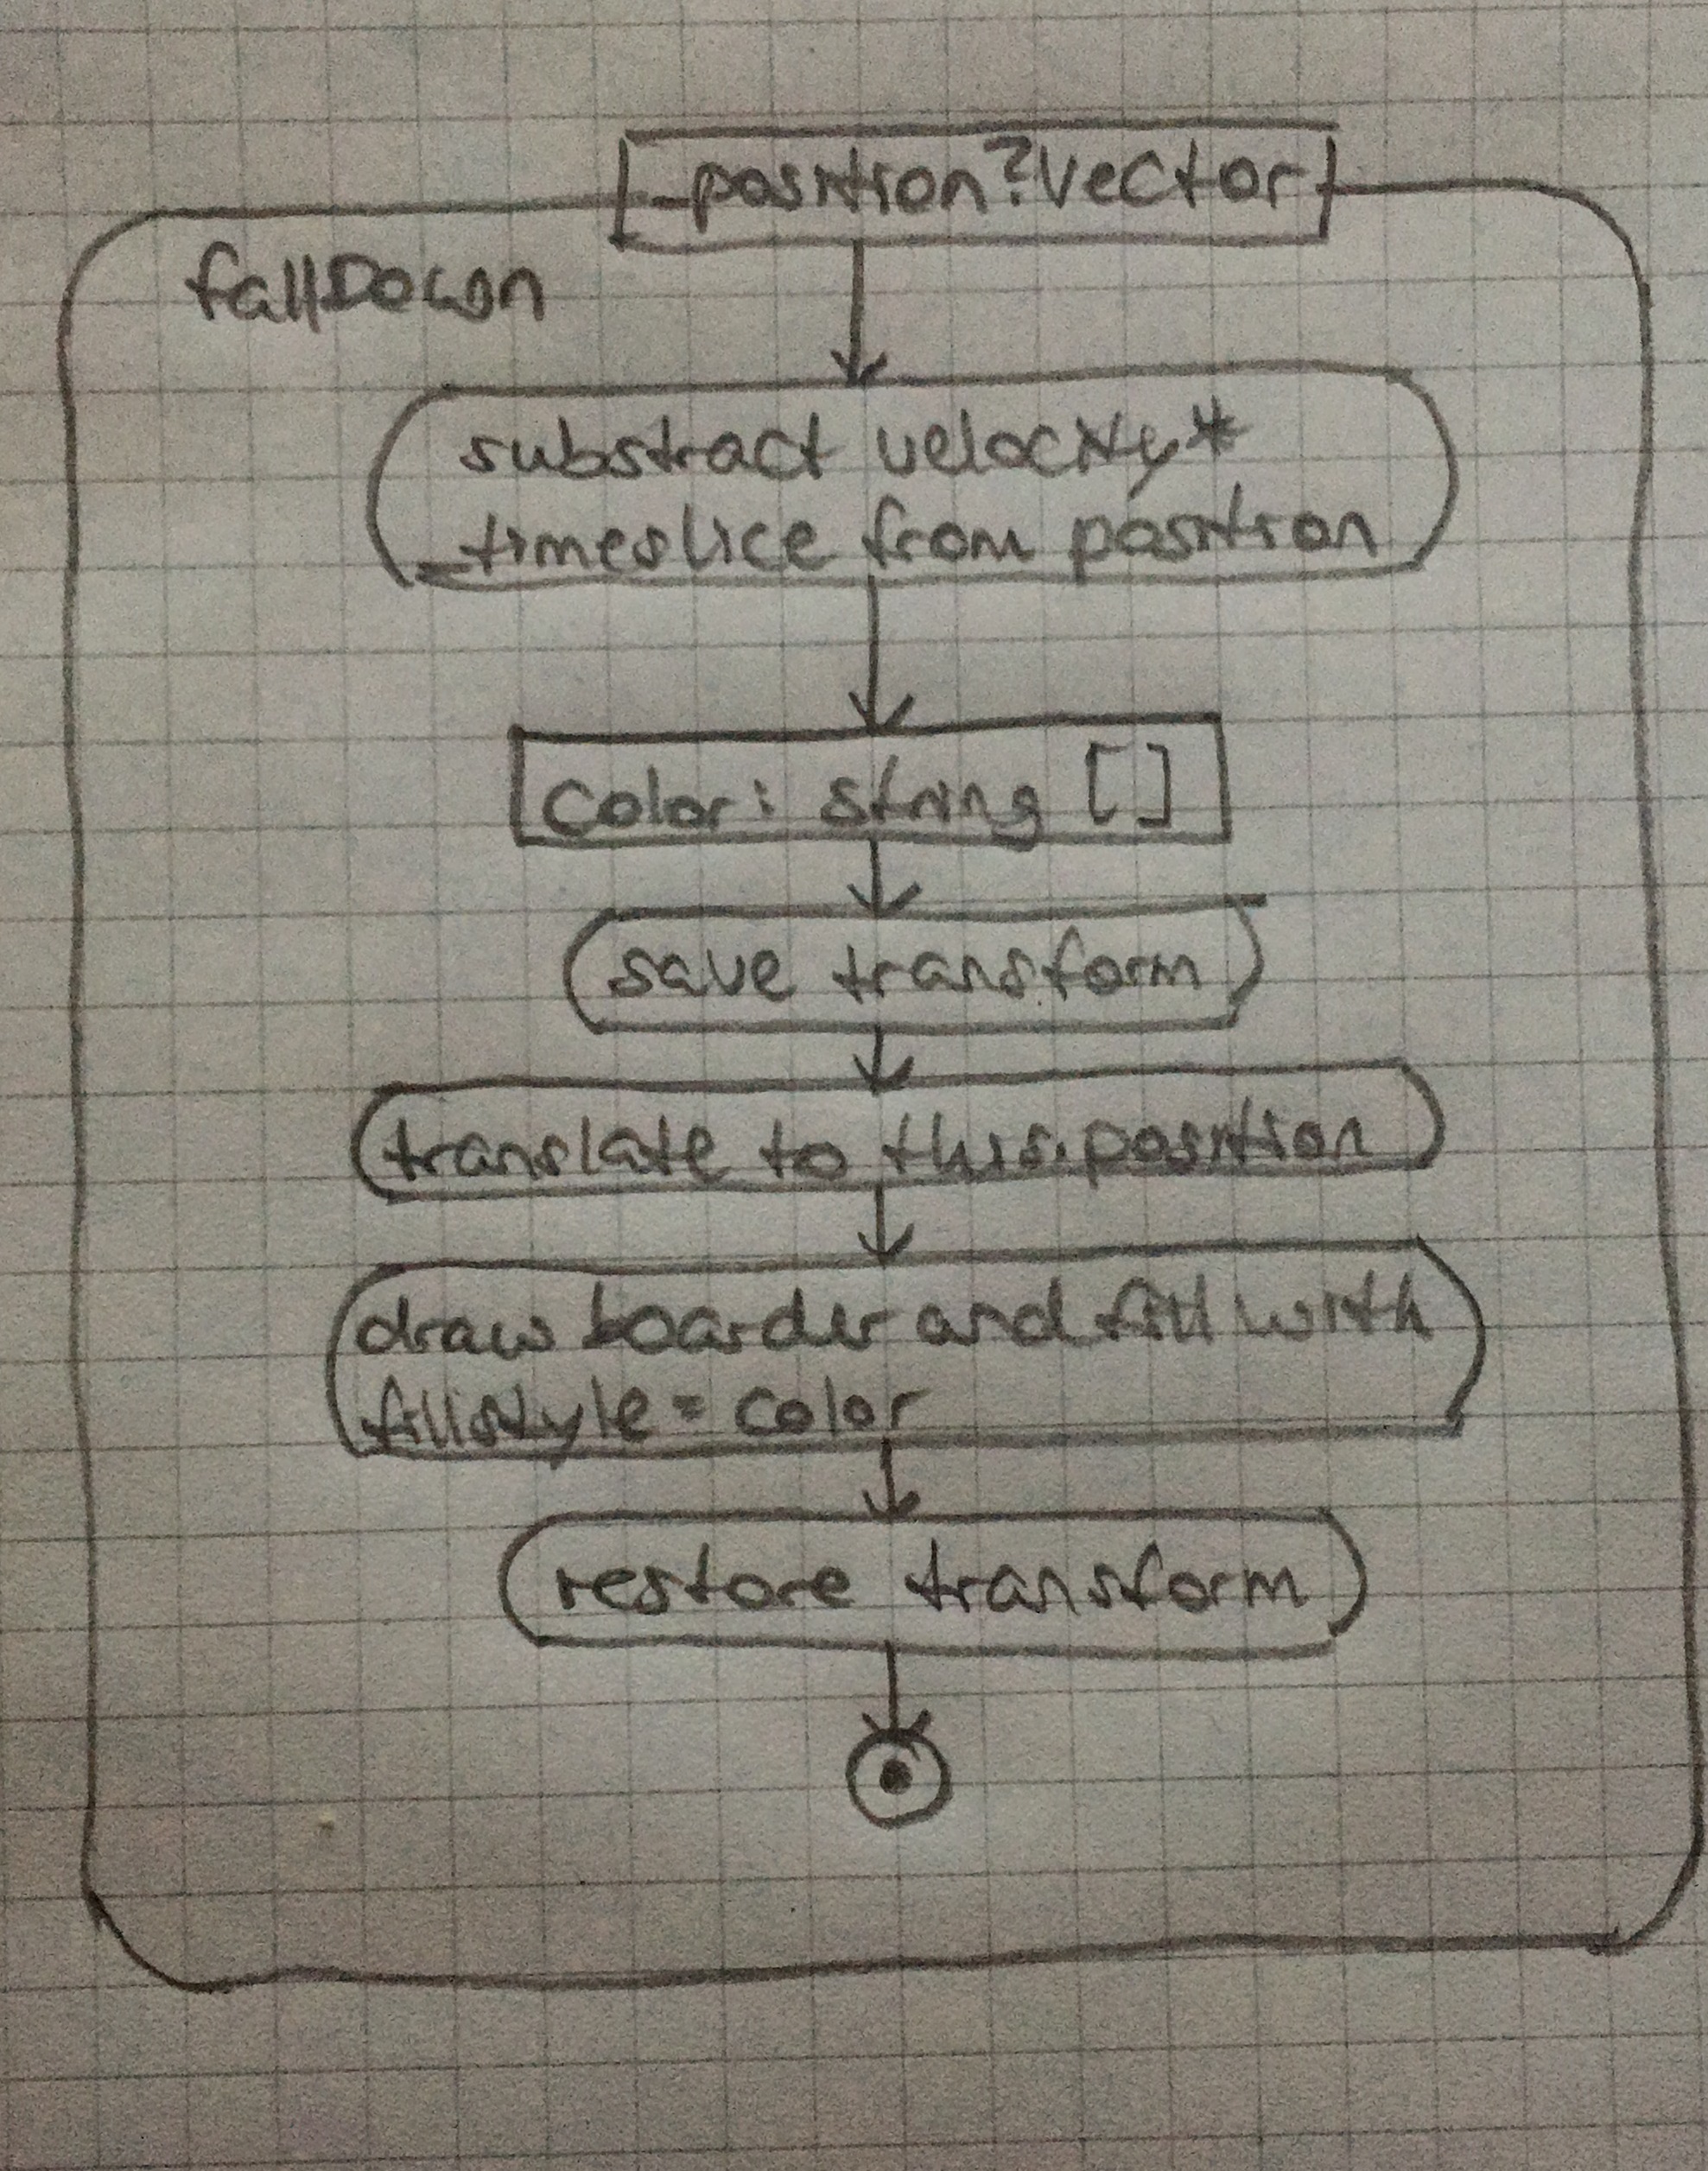 _position?Vector
fallDown
substract velocity*
_timeslice from position
Color: string []
save transform
translate to this.position
draw boarder and fill with
fillstyle = color
restore transform